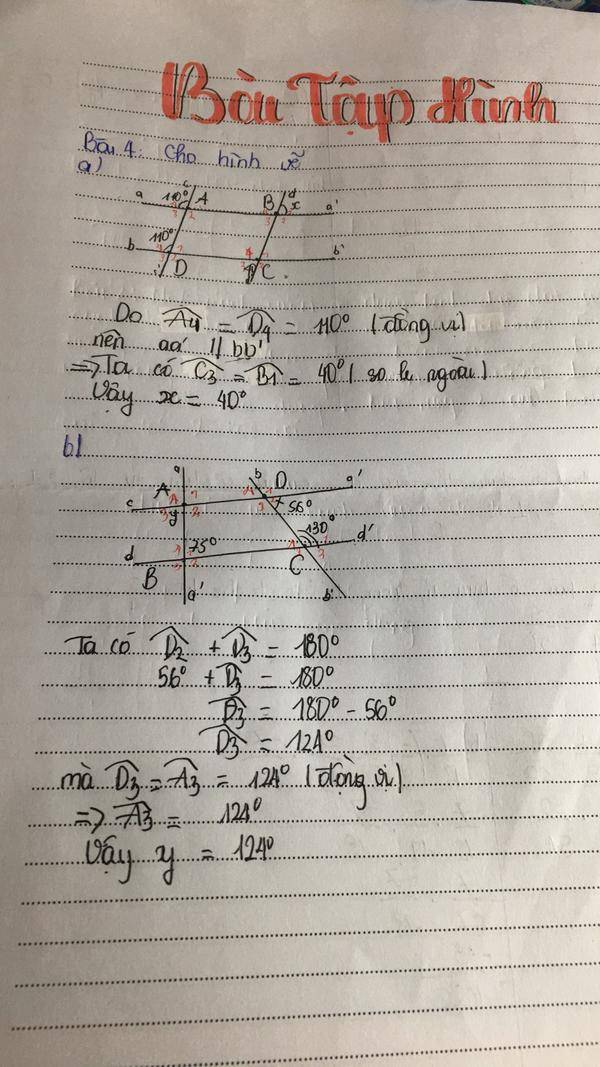 Bài Tập Hình
Bài 4: Cho hình vẽ
a)
c d
a 110° A B x a'
4 3 2 3 2
110° 4
b b'
D C
Do A4 = D4 = 110° (đồng vị)
nên aa' // bb'
=> Ta có C3 = B1 = 40° ( so le ngoài)
Vậy x = 40°
b)
a b D a'
A 4 1 4 1
c 3 y 2 3 2 56°
130°
d 75° d'
B C
a' b'
Ta có D2 + D3 = 180°
56° + D3 = 180°
D3 = 180° - 56°
D3 = 124°
mà D3 = A3 = 124° (đồng vị)
=> A3 = 124°
Vậy y = 124°